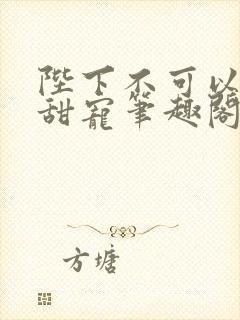 陛下不可以
甜寵筆趣閣
方塘